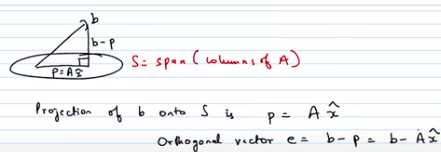 b
b-p
S= span ( columns of A )
p= Ax̂
Projection of b onto S is p = A x̂
Orthogonal vector e = b-p = b- Ax̂